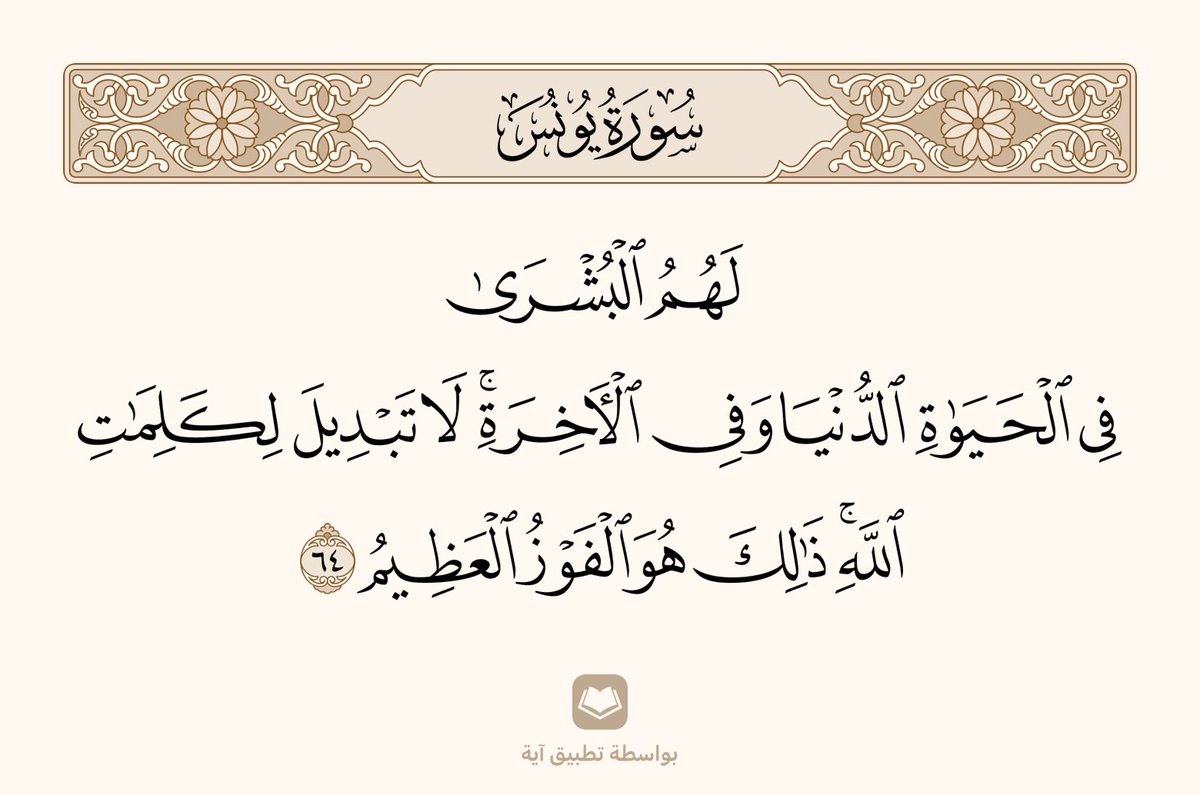 سُورَةُ يُونُسَ
لَهُمُ ٱلْبُشْرَىٰ
فِى ٱلْحَيَوٰةِ ٱلدُّنْيَا وَفِى ٱلْأَخِرَةِۚ لَا تَبْدِيلَ لِكَلِمَٰتِ
ٱللَّهِۚ ذَٰلِكَ هُوَ ٱلْفَوْزُ ٱلْعَظِيمُ ٦٤
بواسطة تطبيق آية